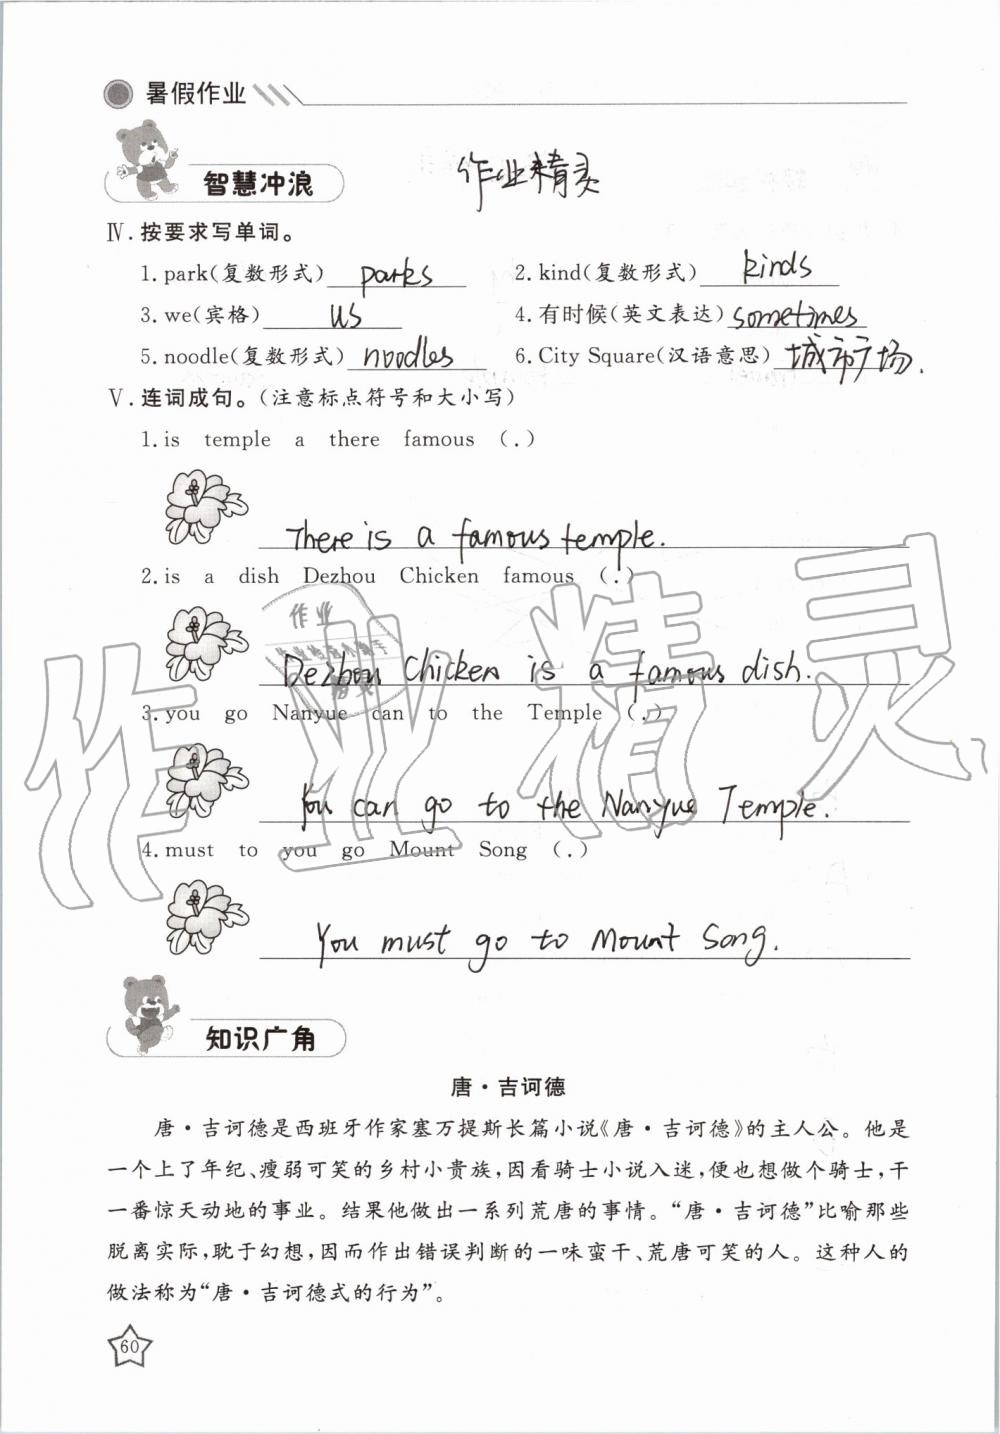 暑假作业
智慧冲浪
作业精灵
Ⅳ.按要求写单词。
1.park(复数形式) parks 2.kind(复数形式) kinds
3.we(宾格) us 4.有时候(英文表达) sometimes
5.noodle(复数形式) noodles 6.City Square(汉语意思) 城市广场.
Ⅴ.连词成句。(注意标点符号和大小写)
1.is temple a there famous (.)
There is a famous temple.
2.is a dish Dezhou Chicken famous (.)
作业
Dezhou Chicken is a famous dish.
3.you go Nanyue can to the Temple (.)
You can go to the Nanyue Temple.
4.must to you go Mount Song (.)
You must go to Mount Song.
作业精灵
知识广角
唐·吉诃德
唐·吉诃德是西班牙作家塞万提斯长篇小说《唐·吉诃德》的主人公。他是
一个上了年纪、瘦弱可笑的乡村小贵族,因看骑士小说入迷,便也想做个骑士,干
一番惊天动地的事业。结果他做出一系列荒唐的事情。“唐·吉诃德”比喻那些
脱离实际,耽于幻想,因而作出错误判断的一味蛮干、荒唐可笑的人。这种人的
做法称为“唐·吉诃德式的行为”。
60